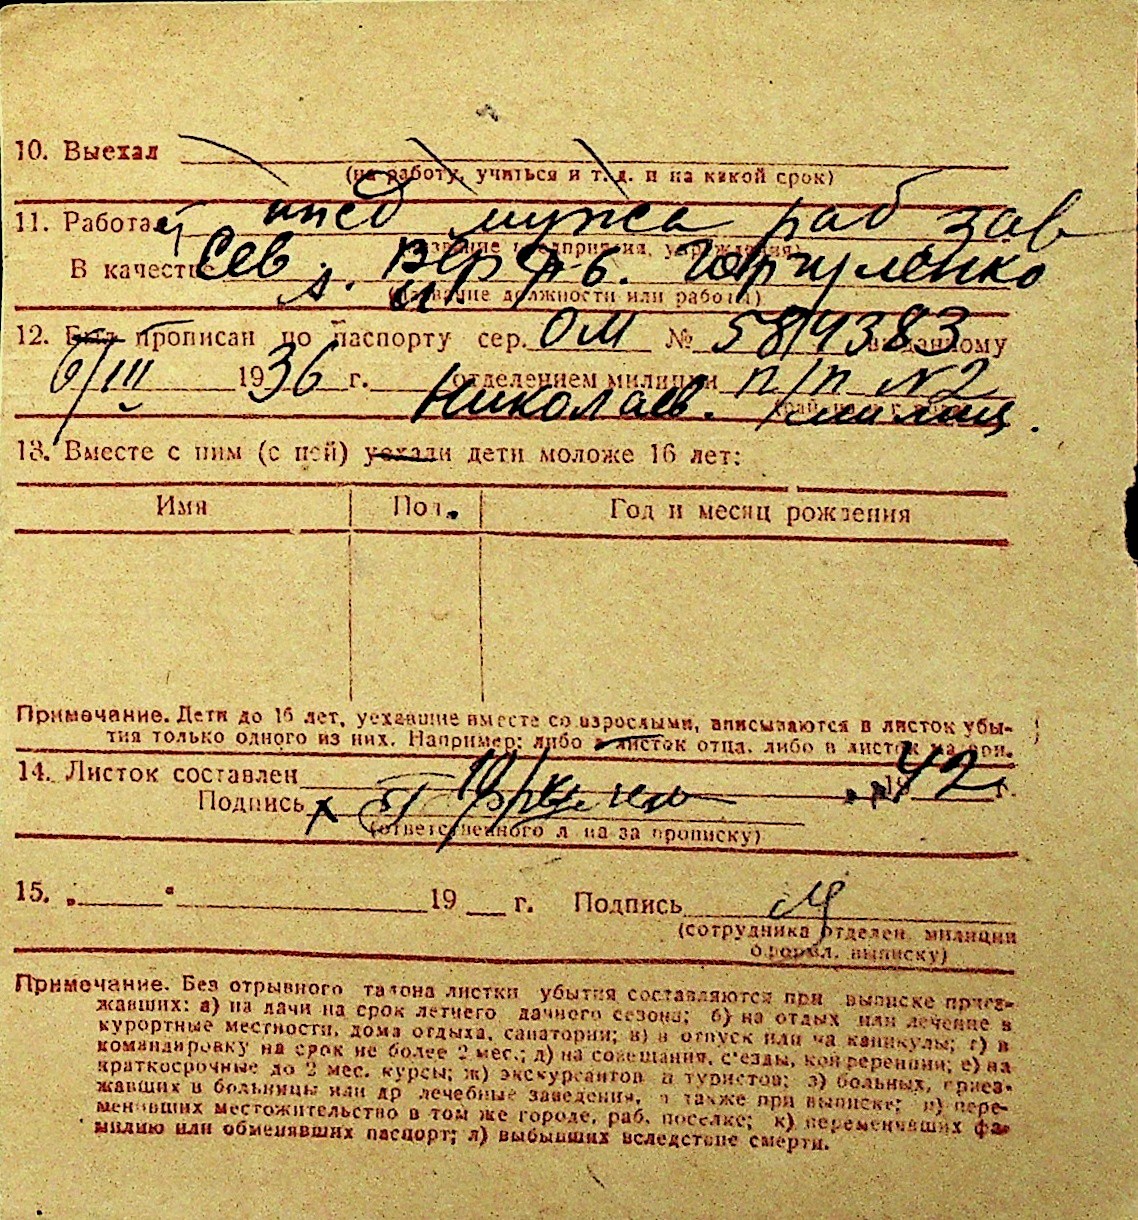 10. Выехал
(на работу, учиться и т. д. и на какой срок)
11. Работает ижд мужа раб зав
(название предприятия, учреждения)
В качестве Сев. Верфь.
(название должности или работы)
12. Был прописан по паспорту сер. ОМ № 584383 выданному
6/III 1936 г. отделением милиции п/п №2
Николаев.
13. Вместе с ним (с ней) уехали дети моложе 16 лет:
Имя Пол. Год и месяц рождения
Примечание. Дети до 16 лет, уехавшие вместе со взрослыми, вписываются в листок убы-
тия только одного из них. Например: либо в листок отца, либо в листок матери.
14. Листок составлен 1942 г.
Подпись
(ответственного лица за прописку)
15. „ “ 19 г. Подпись
(сотрудника отделен. милиции
оформл. выписку)
Примечание. Без отрывного талона листки убытия составляются при выписке приез-
жавших: а) на дачи на срок летнего дачного сезона; б) на отдых или лечение в
курортные местности, дома отдыха, санатории; в) в отпуск или на каникулы; г) в
командировку на срок не более 2 мес.; д) на совещания, с'езды, конференции; е) на
краткосрочные до 2 мес. курсы; ж) экскурсантов и туристов; з) больных, приез-
жавших в больницы или др лечебные заведения, а также при выписке; и) пере-
менивших местожительство в том же городе, раб. поселке; к) переменивших фа-
милию или обменявших паспорт; л) выбывших вследствие смерти.